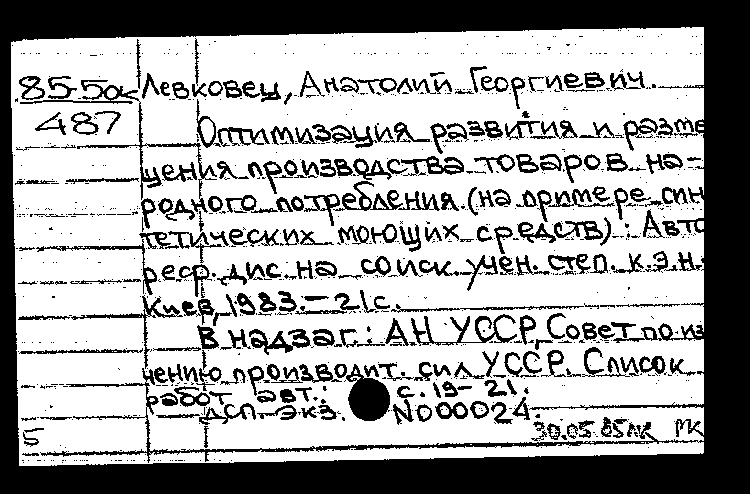 85-5ак Левковец, Анатолий Георгиевич.
487
Оптимизация развития и разме
щения производства товаров на-
родного потребления (на примере син
тетических моющих средств) : Авто
реф. дис. на соиск. учен. степ. к.э.н.
Киев, 1983. – 21 с.
В надзаг.: АН УССР, Совет по из
чению производит. сил УССР. Список
работ авт.: с. 19-21.
ДСП. Экз. N000024.
5
30.05.85 РК